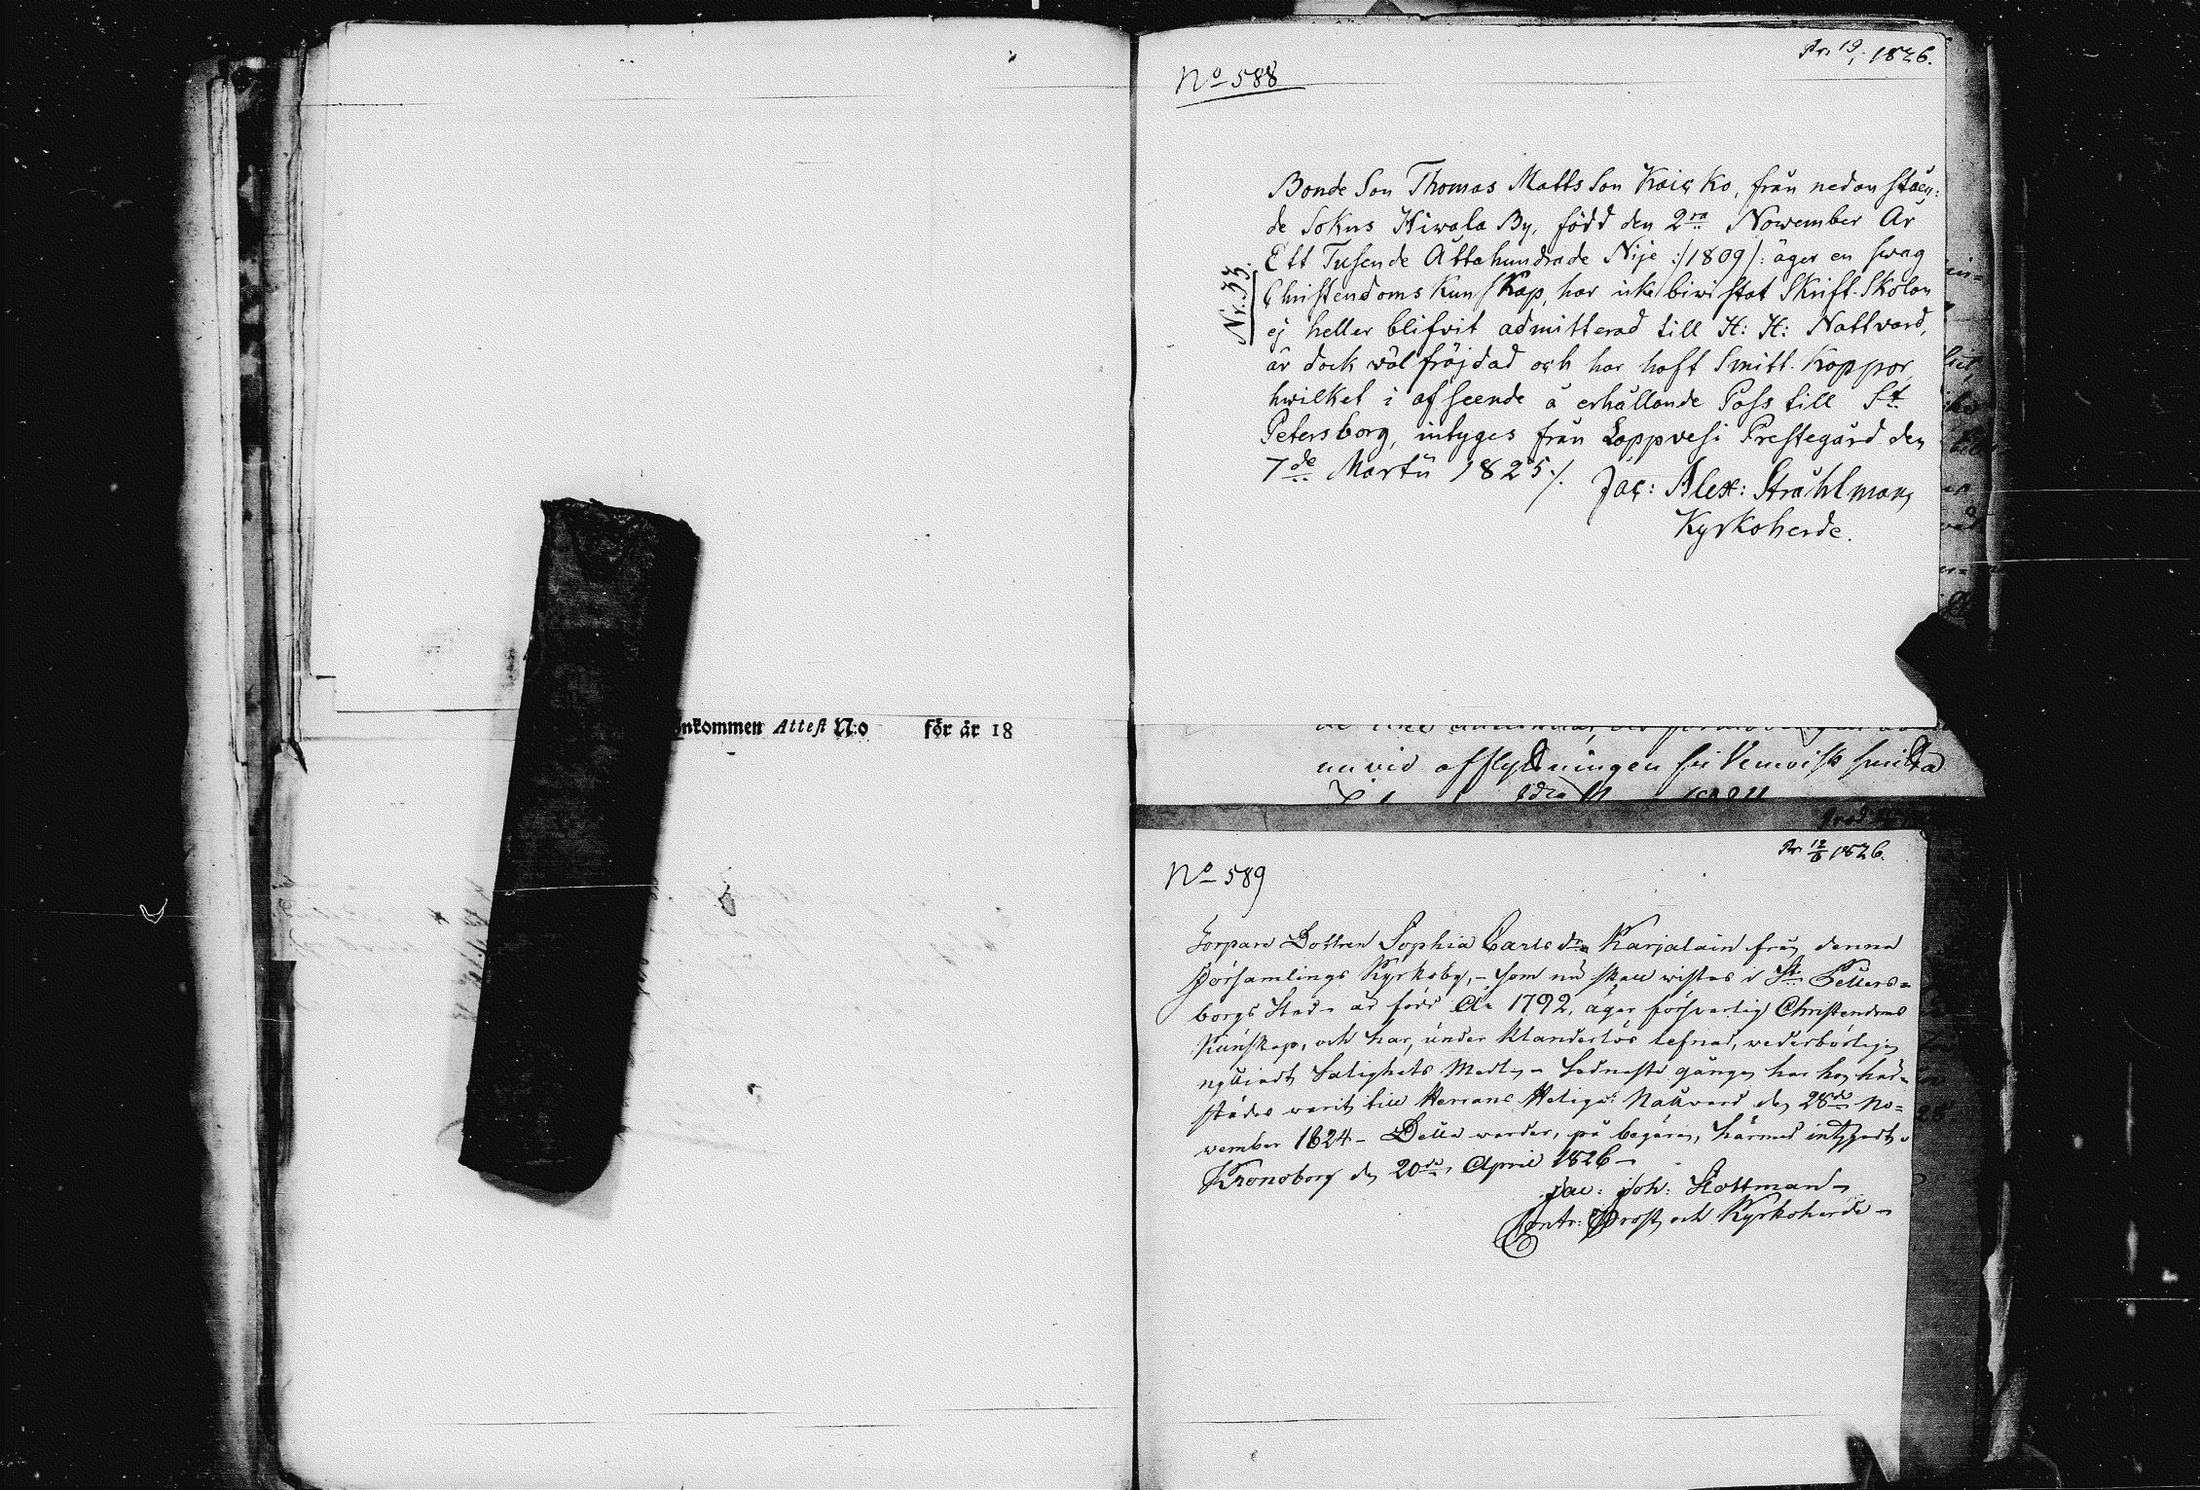 nkommen Attest N:o för år 18
Pr. 19/1 1826.
No 588
Nr. 33.
Bonde Son Thomas Matts Son Kaicko, från nedanståen:
de Sokns Hiwala By, född den 2ra November År
Ett Tusende Åttahundrade Nije :/1809/: äger en swag
Christendoms Kunskap, har icke biwistat Skrift-Skolan
ej heller blifvit admitterad till H: H: Nattvard,
är dock wäl fräjdad och har haft Smitt-Koppor,
hwilket i afseende å erhållande Pass till St
Petersborg, intyges från Loppvesi Prestegård den
7de Martii 1825 /.
Jac: Alex: Stråhlman,
Kyrkoherde.
un vid afflyttningen fri Venerisk smitta
Pr. 12/6 1826.
No 589
Torpare Dottren Sophia Carlsdr Karjalain från denna
Församlings Kyrkoby, - som nu skall wistas i St Petters=
borgs Stad - är född År 1792, äger försvarlig Christendoms
Kunskap, och har, under klanderlös lefnad, vederbörligen
nyttjadt Salighets Medlen - Sednaste gången har hon här=
städes warit till Herrans Heliga Nattvard den 28de No=
vember 1824 - Detta warder, på begäran, härmed intygadt.
Kronoborg den 20de April 1826 -
Jac: Joh: Hottman -
Contr: Prost och Kyrkoherde -